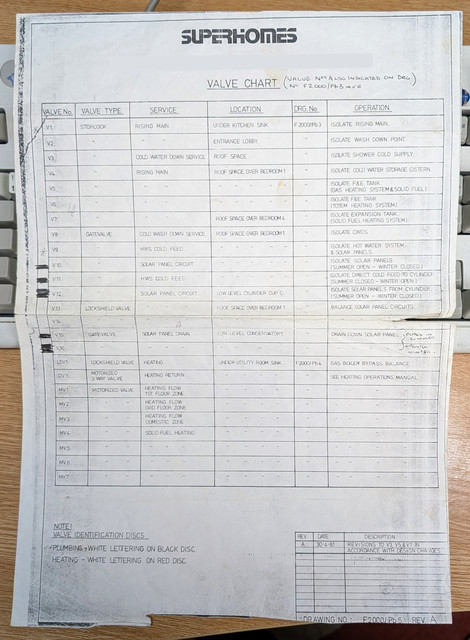 SUPERHOMES
VALVE CHART (VALVE Nos ALSO INDICATED ON DRG.
No F2000/Pb3
VALVE No. VALVE TYPE SERVICE LOCATION DRG. No. OPERATION
V1 STOPCOCK RISING MAIN UNDER KITCHEN SINK F2000/Pb3 ISOLATE RISING MAIN
V2 " " ENTRANCE LOBBY " ISOLATE WASH DOWN POINT
V3 " COLD WATER DOWN SERVICE ROOF SPACE " ISOLATE SHOWER COLD SUPPLY
V4 " RISING MAIN ROOF SPACE OVER BEDROOM 1 " ISOLATE COLD WATER STORAGE CISTERN
V5 " " " " ISOLATE F&E TANK
(GAS HEATING SYSTEM & SOLID FUEL)
V6 " " " " ISOLATE F&E TANK
(TOTEM HEATING SYSTEM)
V7 " " ROOF SPACE OVER BEDROOM 4 " ISOLATE EXPANSION TANK
(SOLID FUEL HEATING SYSTEM)
V8 GATEVALVE COLD WATER DOWN SERVICE ROOF SPACE OVER BEDROOM 1 " ISOLATE CWDS
V9 " HWS COLD FEED " " ISOLATE HOT WATER SYSTEM
& SOLAR PANELS
V10 " SOLAR PANEL CIRCUIT " " ISOLATE SOLAR PANELS
(SUMMER OPEN - WINTER CLOSED)
V11 " HWS COLD FEED " " ISOLATE DIRECT COLD FEED TO CYLINDER
(SUMMER CLOSED - WINTER OPEN)
V12 " SOLAR PANEL CIRCUIT LOW LEVEL CYLINDER CUP'D " ISOLATE SOLAR PANELS FROM CYLINDER
(SUMMER OPEN - WINTER CLOSED)
V13 LOCKSHIELD VALVE " ROOF SPACE OVER BEDROOM 1 " BALANCE SOLAR PANEL CIRCUITS
V14 " " " " "
V15 GATEVALVE SOLAR PANEL DRAIN LOW LEVEL CONSERVATORY " DRAIN DOWN SOLAR PANEL
V16 " " " " "
LSV1 LOCKSHIELD VALVE HEATING UNDER UTILITY ROOM SINK F2000/Ph4 GAS BOILER BYPASS BALANCE
MOTORIZED
3 WAY VALVE HEATING RETURN " " SEE HEATING OPERATIONS MANUAL
MV1 MOTORIZED VALVE HEATING FLOW
1ST FLOOR ZONE " " "
MV2 " HEATING FLOW
GRD FLOOR ZONE " " "
MV3 " HEATING FLOW
DOMESTIC ZONE " " "
MV4 " SOLID FUEL HEATING " " "
MV5 " " " " "
MV6 " " " " "
MV7 " " " " "
NOTE:
VALVE IDENTIFICATION DISCS
PLUMBING - WHITE LETTERING ON BLACK DISC
HEATING - WHITE LETTERING ON RED DISC
REV DATE DESCRIPTION
A 30-4-81 REVISIONS TO V3, V5 & V7 IN
ACCORDANCE WITH DESIGN CHANGES
DRAWING NO: F2000/Pb5 REV A